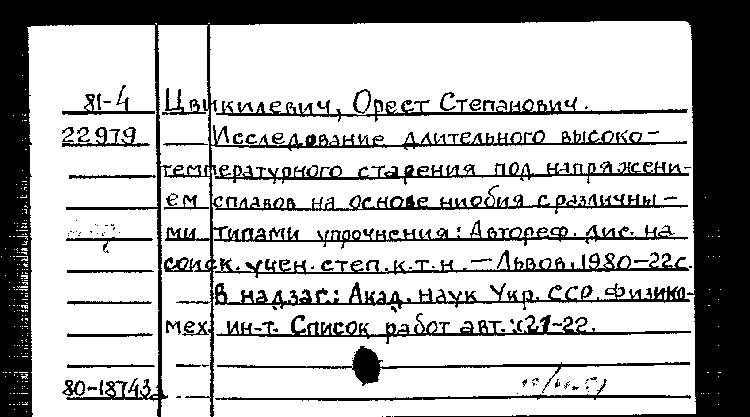 81-4 Цвикилевич, Орест Степанович.
22979 Исследование длительного высоко-
температурного старения под напряжени-
ем сплавов на основе ниобия с различны-
ми типами упрочнения: Автореф. дис. на
соиск. учен. степ. к.т.н. — Львов, 1980-22с.
В надзаг.: Акад. наук Укр. ССР. Физико-
мех. ин-т. Список работ авт.: с.21-22.
80-18743